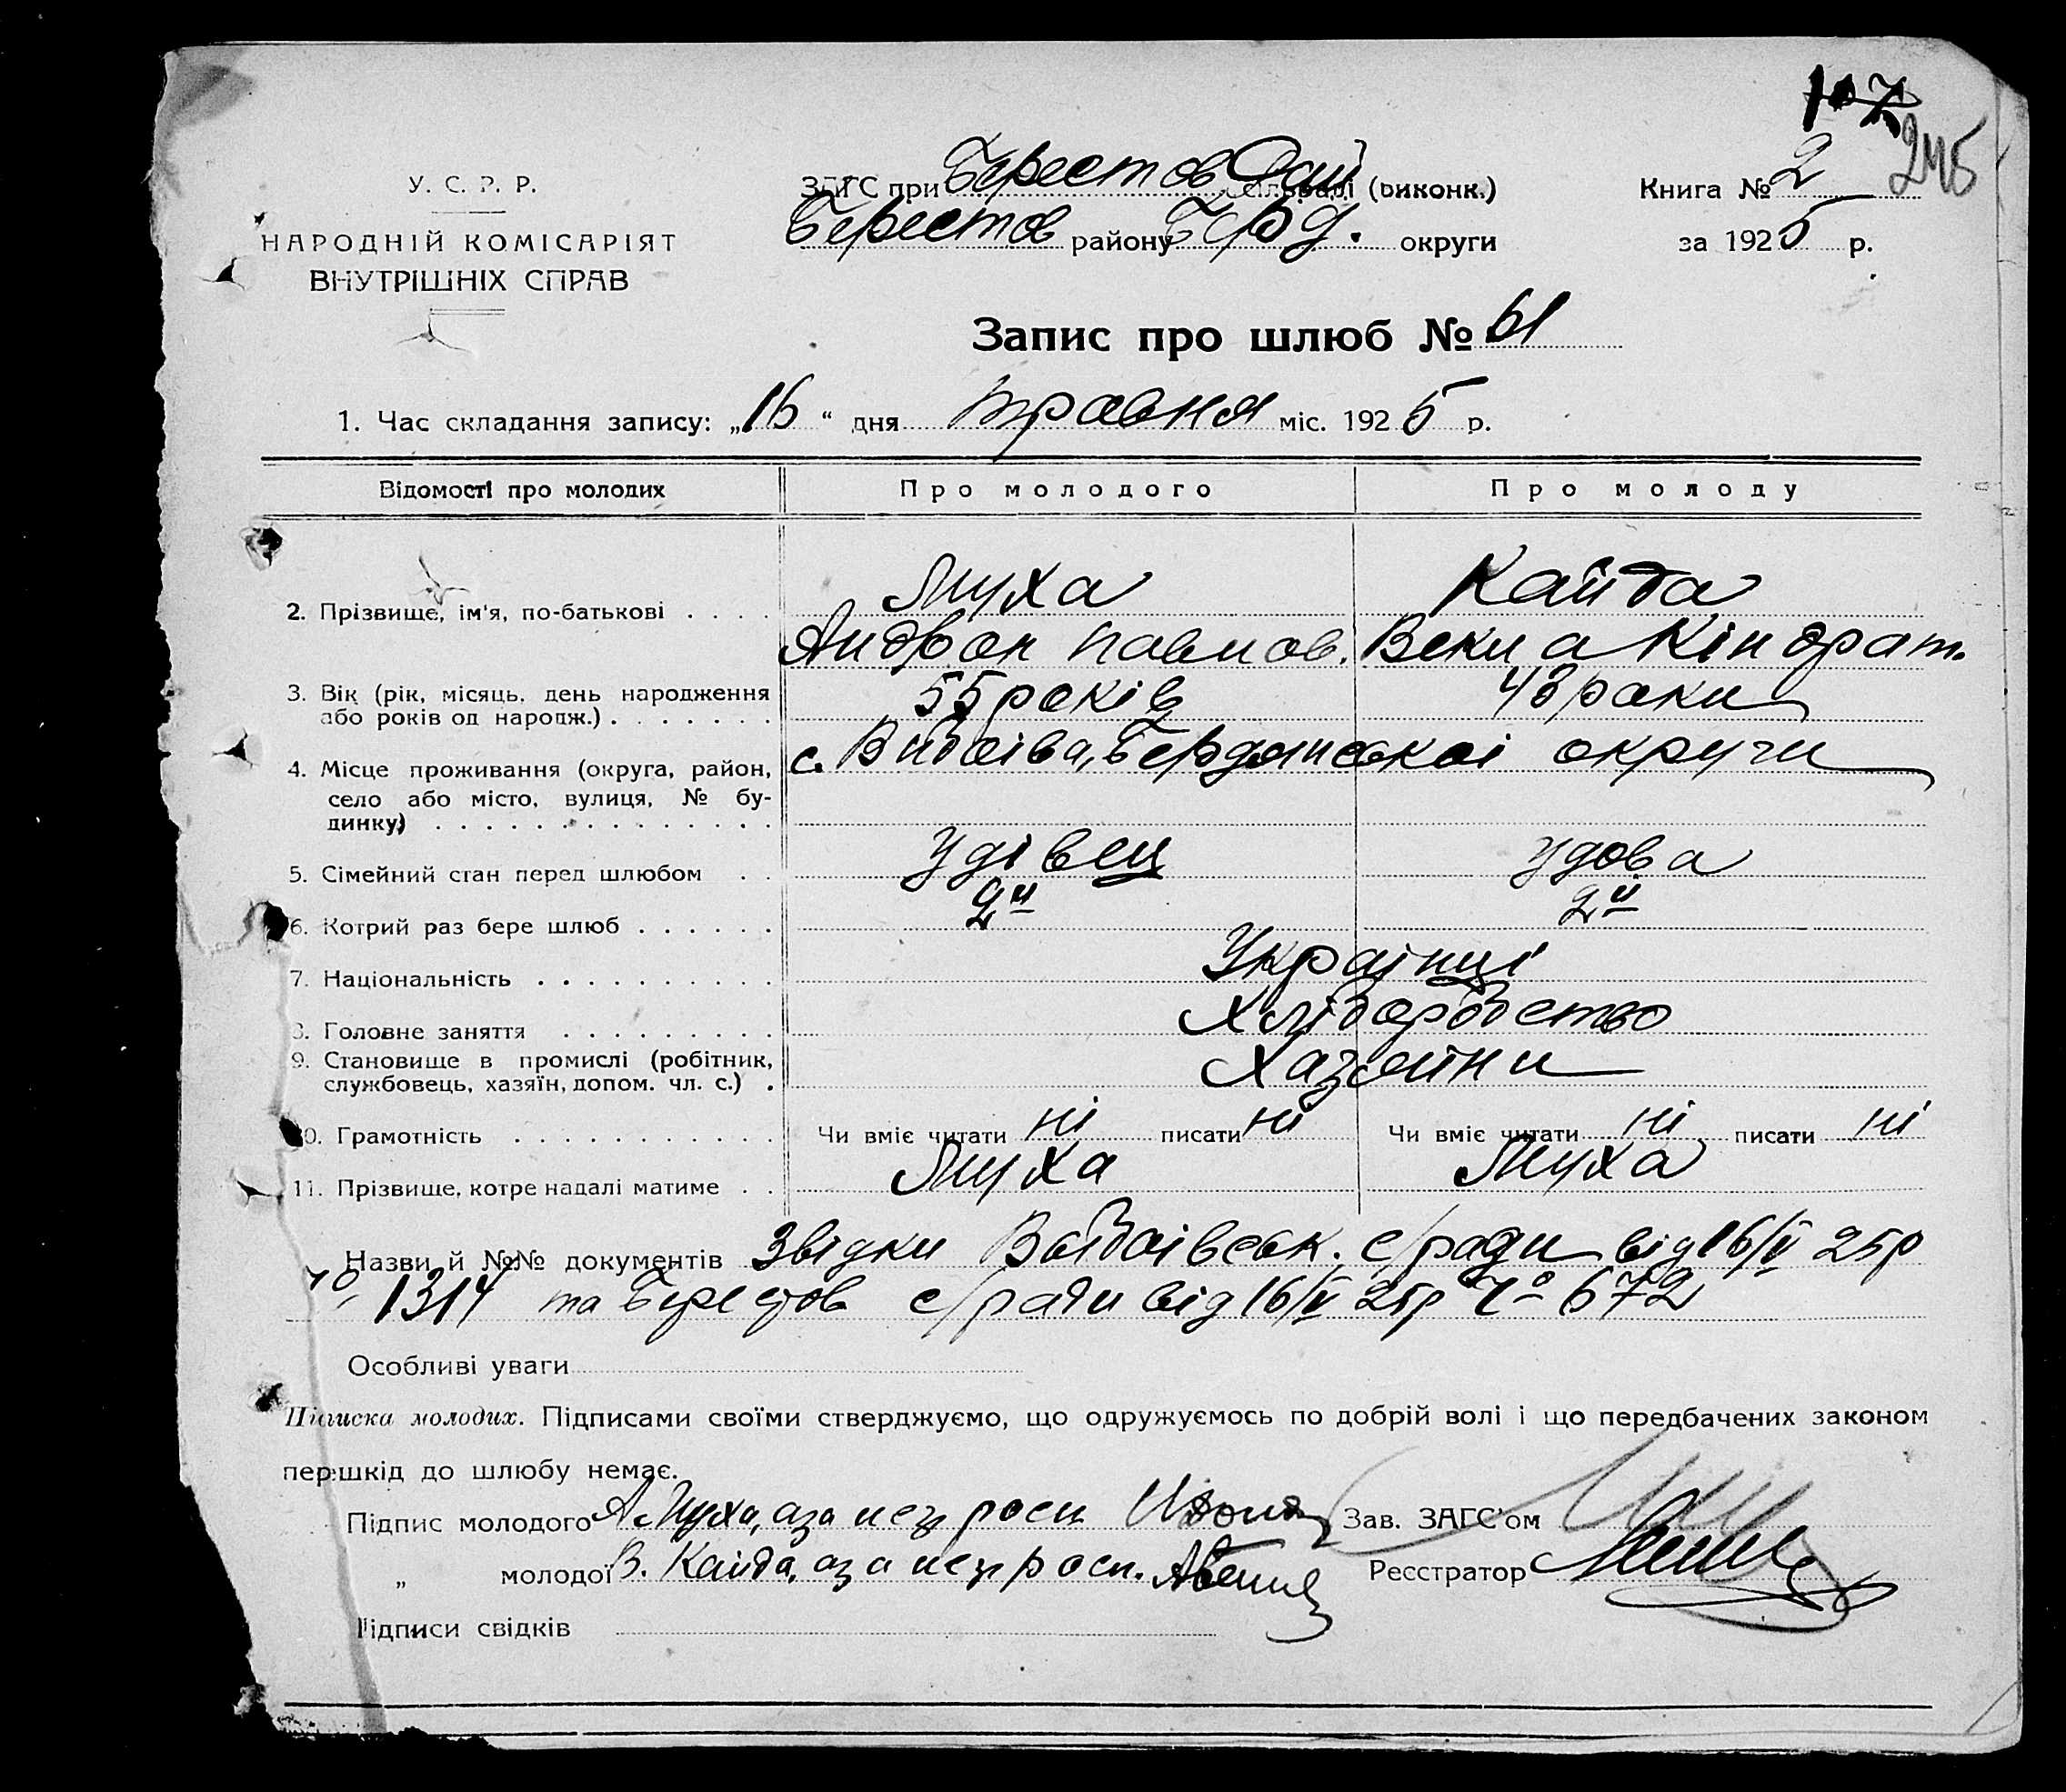 107
245
У. С. Р. Р.
НАРОДНІЙ КОМІСАРІЯТ
ВНУТРІШНІХ СПРАВ
ЗАГС при Берестов Рай сільраді (виконк.)
Берестов району Берд. округи
Книга № 2
за 1925 р.
Запис про шлюб № 61
1. Час складання запису: „16“ дня травня міс. 1925 р.
Відомості про молодих
Про молодого
Про молоду
2. Прізвище, ім'я, по-батькові . . . .
Муха
Андрон Павлов.
Кайда
Векла Кіндрат.
3. Вік (рік, місяць, день народження
або років од народж.) . . . . . . .
55 років
43 роки
4. Місце проживання (округа, район,
село або місто, вулиця, № бу-
динку) . . . . . . . . . . . . . .
с. Бердянськоі округи
5. Сімейний стан перед шлюбом . .
Удівец
Удова
6. Котрий раз бере шлюб . . . . . .
2й
2й
7. Національність . . . . . . . . . .
Украінці
8. Головне заняття . . . . . . . . .
Хліборобство
9. Становище в промислі (робітник,
службовець, хазяїн, допом. чл. с.) .
Хазяйни
10. Грамотність . . . . . . . . . . .
Чи вміє читати ні писати ні
Чи вміє читати ні писати ні
11. Прізвище, котре надалі матиме . .
Муха
Муха
Назви й №№ документів Звідки с/ради від 16/V 25р
№ 1314 та Берестов с/ради від 16/V 25р № 672
Особливі уваги
Підписка молодих. Підписами своїми стверджуємо, що одружуємось по добрій волі і що передбачених законом
перешкід до шлюбу немає.
Підпис молодого А. Муха, а за нец роси
Зав. ЗАГС'ом
„ молодої В. Кайда, а за нец росп.
Реєстратор
Підписи свідків